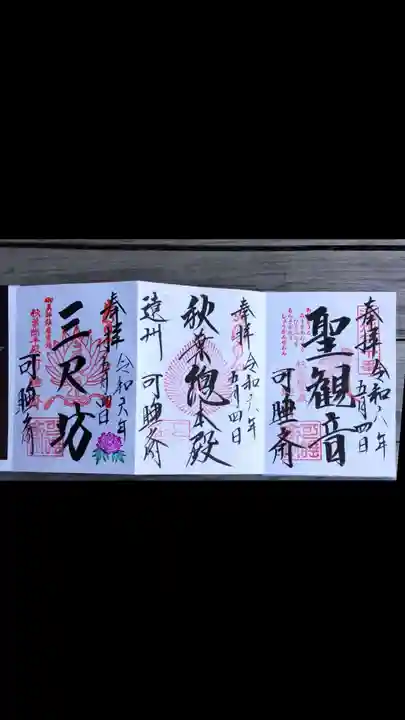 奉拝 令和六年
五月四日
聖観音
可睡斎
奉拝 令和六年
五月四日
秋葉總本殿
遠州 可睡斎
奉拝 令和六年
五月四日
三尺坊
可睡斎